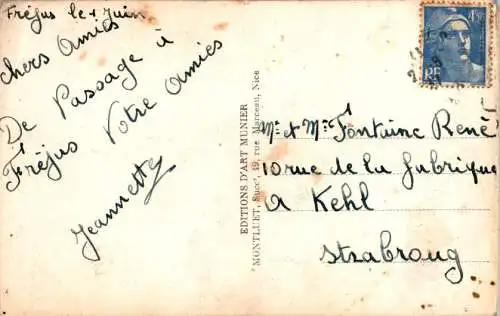 Fréjus le 1 Juin
chers Amies
De Passage à
Fréjus Votre Amies
Jeannette
EDITIONS D'ART MUNIER
MONTLUET, Succr, 19, rue Marceau, Nice
RF
Mr et Mme Fontaine René
10 rue de la fabrique
a Kehl
Strabroug